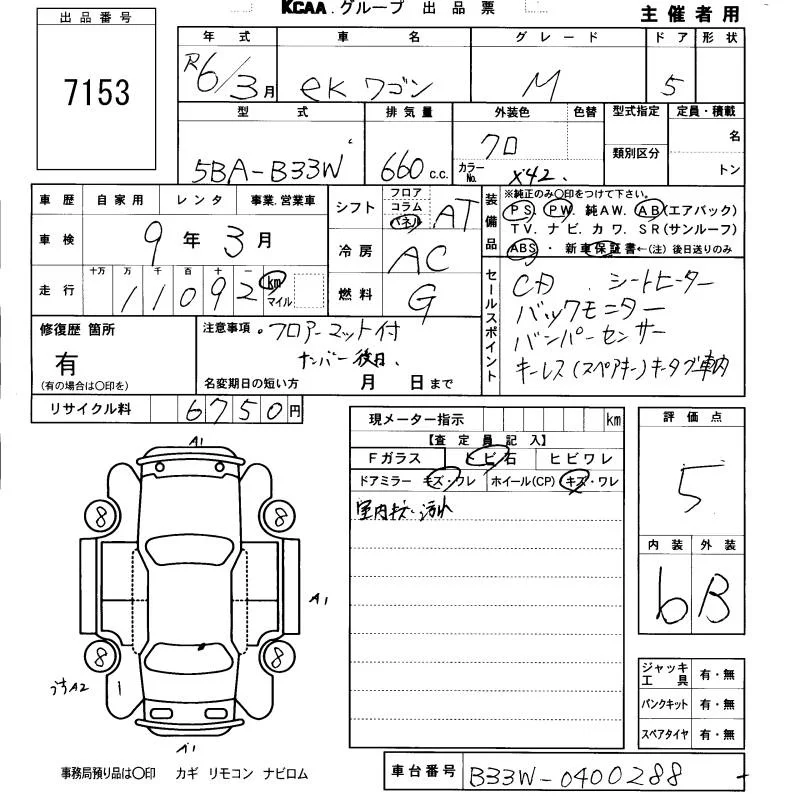 KCAA.グループ 出品票
主催者用
出品番号
7153
年式 車名 グレード ドア 形状
R6/3月 eKワゴン M 5
型式 排気量 外装色 色替 型式指定 定員・積載
5BA-B33W 660 c.c. クロ 類別区分 名
カラーNo. X42. トン
車歴 自家用 レンタ 事業.営業車
車検 9年3月
走行 十万 万 千 百 十 一
11092 km マイル
シフト フロア コラム パネル AT
冷房 AC
燃料 G
装備品 ※純正のみ〇印をつけて下さい。
PS. PW. 純AW. AB(エアバック)
TV. ナビ. カワ. SR(サンルーフ)
ABS・新車保証書←(注)後日送りのみ
セールスポイント
CD . シートヒーター
バックモニター
バンパーセンサー
キーレス(スペアキー)キータグ車内
修復歴 箇所
有
(有の場合は〇印を)
注意事項・フロアーマット付
ナンバー後日.
名変期日の短い方 月 日まで
リサイクル料 6750円
現メーター指示 km
【査定員記入】
Fガラス トビ石 ヒビワレ
ドアミラー キズ・ワレ ホイール(CP) キズ・ワレ
室内キズ・汚れ
評価点
5
内装 外装
6 B
A1
8 8
A1
8 8
A2
A1
ジャッキ工具 有・無
パンクキット 有・無
スペアタイヤ 有・無
事務局預り品は〇印 カギ リモコン ナビロム
車台番号 B33W-0400288